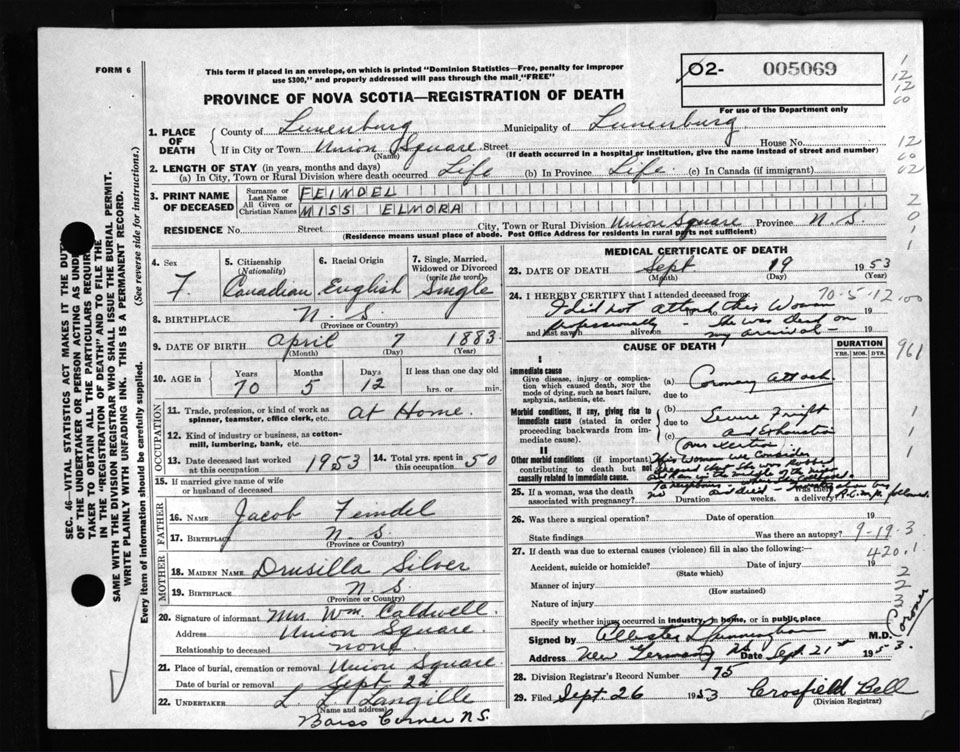 FORM 6
This form if placed in an envelope, on which is printed "Dominion Statistics—Free, penalty for improper
use $300," and properly addressed will pass through the mail "FREE"
PROVINCE OF NOVA SCOTIA—REGISTRATION OF DEATH
02- 005069
For use of the Department only
1. PLACE OF DEATH
County of Lunenburg Municipality of Lunenburg
If in City or Town Union Square Street House No.
(Name) (If death occurred in a hospital or institution, give the name instead of street and number)
2. LENGTH OF STAY (in years, months and days)
(a) In City, Town or Rural Division where death occurred Life (b) In Province Life (c) In Canada (if immigrant)
3. PRINT NAME OF DECEASED
Surname or Last Name FEINDEL
All Given or Christian Names MISS ELMORA
RESIDENCE No. Street City, Town or Rural Division Union Square Province N. S.
(Residence means usual place of abode. Post Office Address for residents in rural parts not sufficient)
4. Sex F.
5. Citizenship (Nationality) Canadian
6. Racial Origin English
7. Single, Married, Widowed or Divorced (write the word) Single
8. BIRTHPLACE N. S.
(Province or Country)
9. DATE OF BIRTH April 7 1883
(Month) (Day) (Year)
10. AGE in Years 70 Months 5 Days 12 If less than one day old hrs. or min.
OCCUPATION
11. Trade, profession, or kind of work as spinner, teamster, office clerk, etc. At Home.
12. Kind of industry or business, as cotton-mill, lumbering, bank, etc.
13. Date deceased last worked at this occupation 1953
14. Total yrs. spent in this occupation 50
15. If married give name of wife or husband of deceased
FATHER
16. NAME Jacob Feindel
17. BIRTHPLACE N. S.
(Province or Country)
MOTHER
18. MAIDEN NAME Drusilla Silver
19. BIRTHPLACE N S.
(Province or Country)
20. Signature of informant Mrs. Wm. Caldwell.
Address Union Square.
Relationship to deceased none
21. Place of burial, cremation or removal Union Square
Date of burial or removal Sept. 22
22. UNDERTAKER L. L. Langille
(Name and address)
Barss Corner N S.
MEDICAL CERTIFICATE OF DEATH
23. DATE OF DEATH Sept 19 1953
(Month) (Day) (Year)
24. I HEREBY CERTIFY that I attended deceased from 19
70-5-12.00
I did not attend this Woman
and last saw h alive on 19
professionally - she was dead on
my arrival -
CAUSE OF DEATH
DURATION
YRS. MOS. DYS.
I
Immediate cause
Give disease, injury or complication which caused death, NOT the mode of dying, such as heart failure, asphyxia, asthenia, etc.
(a) Coronary attack
due to
Morbid conditions, if any, giving rise to immediate cause (stated in order proceeding backwards from immediate cause).
(b) Severe Fright
due to and Exhaustion
(c) (over exertion)
II
Other morbid conditions (if important) contributing to death but not causally related to immediate cause.
This Woman we Consider
25. If a woman, was the death associated with pregnancy? no Duration weeks. Was there a delivery?
26. Was there a surgical operation? Date of operation 19
State findings Was there an autopsy?
27. If death was due to external causes (violence) fill in also the following:—
Accident, suicide or homicide? Date of injury 19
(State which)
Manner of injury
(How sustained)
Nature of injury
Specify whether injury occurred in industry, in home, or in public place
Signed by M.D.
(Coroner)
Address New Germany NS Date Sept. 21st 1953.
28. Division Registrar's Record Number 75
29. Filed Sept. 26 1953 Crosfield Bell
(Division Registrar)
961
9-19.3
420.1
SEC. 46—VITAL STATISTICS ACT MAKES IT THE DUTY
OF THE UNDERTAKER OR PERSON ACTING AS UNDER-
TAKER TO OBTAIN ALL THE PARTICULARS REQUIRED
IN THE "REGISTRATION OF DEATH" AND TO FILE THE
SAME WITH THE DIVISION REGISTRAR WHO SHALL ISSUE THE BURIAL PERMIT.
WRITE PLAINLY WITH UNFADING INK. THIS IS A PERMANENT RECORD.
Every item of information should be carefully supplied. (See reverse side for instructions.)